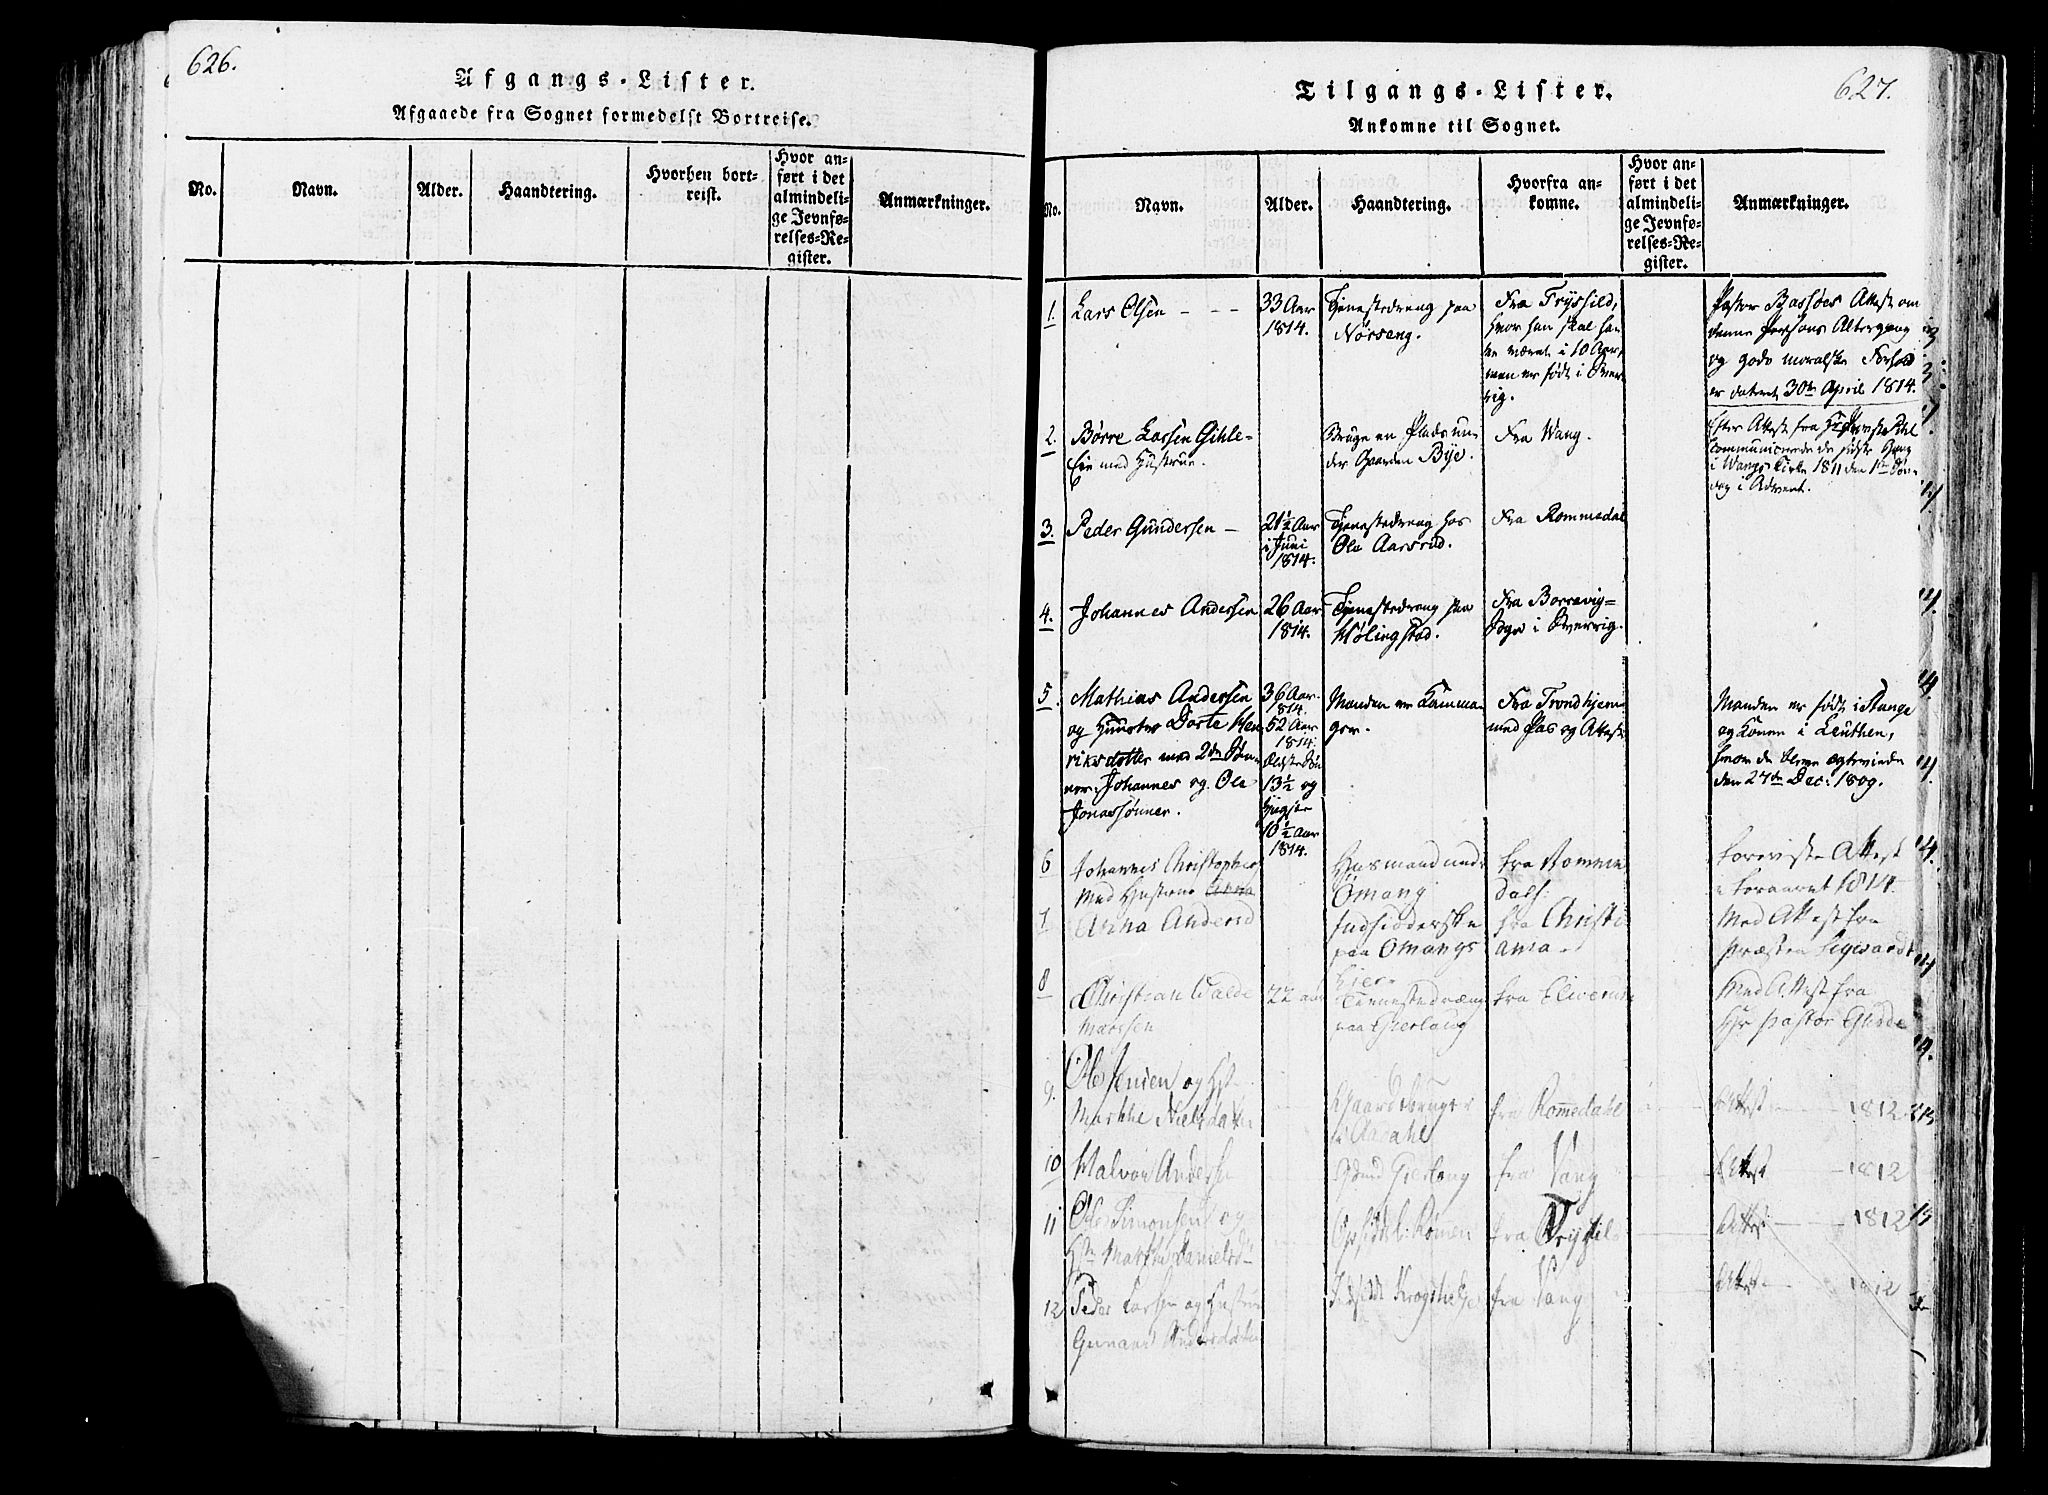 626.
Afgangs-Lister.
Afgaaede fra Sognet formedelst Bortreise.
No.
Navn.
Alder.
Haandtering.
Hvorhen bort-
reist.
Hvor an-
ført i det
almindeli-
ge Jevnfø-
relses-Re-
gister.
Anmærkninger.
627.
Tilgangs-Lister.
Ankomne til Sognet.
No.
Navn.
Alder.
Haandtering.
Hvorfra an-
komne.
Hvor an-
ført i det
almindeli-
ge Jevnfø-
relses-Re-
gister.
Anmærkninger.
1.
Lars Olsen - - -
33 Aar
1814.
Tjenestedreng paa
Nørseng.
Fra Tryssild,
hvor han skal ha-
ve været i 10 Aar,
men er født i Sver-
rig.
Pastor Bassøes Attest om
denne Persons Altergang
og gode moralske Forhold
er dateret 30te April 1814.
2.
Børre Larsen Gihle-
eie med Hustrue.
Bruge en Plads un-
der Gaarden Bye.
Fra Wang.
Efter Attest fra
communicerede de sidste Gang
i Wangs Kirke 1811 den 1te Søn-
dag i Advent.
3.
Peder Gundersen -
21½ Aar
i Juni
1814.
Tjenestedreng hos
Ole Aarsrud.
Fra Rommedal
4.
Johannes Andersen
26 Aar
1814.
Tjenestedreng paa
Hølingstad.
Fra Borrevig=
Sogn i Sverrig.
5.
Mathias Andersen
og Hustru Dorte Hen
riksdotter med 2de Søn-
ner, Johannes og Ole
Jonassønner.
36 Aar.
1814.
52 Aar
1814.
Ældste Søn
13½ og
Yngste
10½ Aar
1814.
Manden er Kamma-
ger.
Fra Trondhjem
med Pas og Attest
Manden er født i Stange
og Konen i Leuthen,
hvor de bleve egteviede
den 27de Dec: 1809.
6
Johannes Christophers
Med Hustrue Anna
Husmand unde
Ømang
fra Romme
dals:
foreviste Attest
i foraaret 1814.
7
Anna Andersd
Indsidderske
paa Omangs
Eier.
fra Christi
ania -
Med Attest fra
Præsten
8
Christian
22 aar
Tienestedræng
paa Gierlaug
fra Elverum
Med Attest fra
Hr Pastor
9.
Ole Jensen og Hst-
Marthe Nielsdatter
Gaardbruger
i Aadahl
fra Romedahl
Attest - - 1812
10
Halvor Anders
Gierlaug
fra Vang
Attest - 1812
11
Ole Simonsen og
Hst Marthe Danielsd-
fra Trysil
Attest - - 1812
12
Peder Larsen og Hustrue
Andersdatter
fra Vang
Attest - 1812